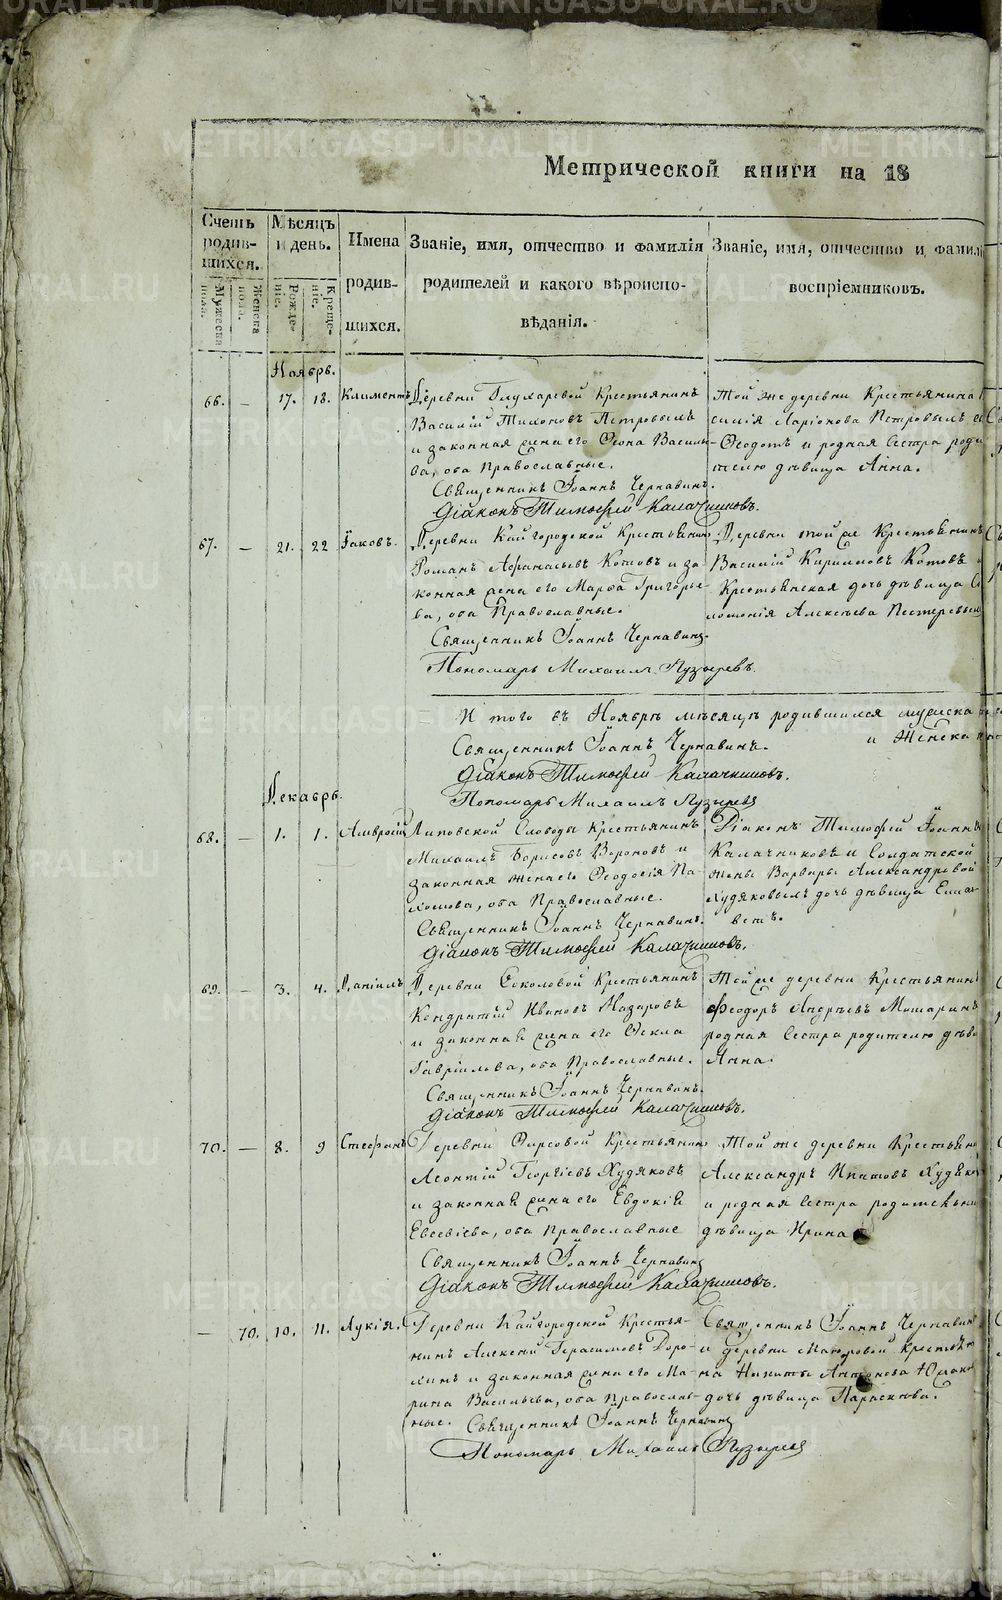 Метрической книги на 18
Счетъ родив-шихся.
Мужеска пола.
Женска пола.
Мѣсяцъ и день.
Рожде-ніе.
Креще-ніе.
Имена родив-шихся.
Званіе, имя, отчество и фамилія
родителей и какого вѣроиспо-
вѣданія.
Званіе, имя, отчество и фамил
воспріемниковъ.
Ноябрь.
66. — 17. 18. Климентъ
Деревни Глухаревой Крестьянинъ
Василій Тихоновъ Петровыхъ
и законная жена его Васильe-
ва, оба Православные.
Священникъ Іоаннъ Чернавинъ.
Діаконъ Тимофей Калачниковъ.
Той же деревни Крестьянина
силія Ларіонова Петровыхъ
Ѳеодотъ и родная Сестра роди
телю дѣвица Анна.
67. — 21. 22 Іаковъ.
Деревни Кайгородской Крестьянинъ
Романъ Афанасьевъ Котовъ и за-
конная жена его Марфа Григорье-
ва, оба Православные.
Священникъ Іоаннъ Чернавинъ.
Пономарь Михаилъ Пузыревъ.
Деревни той же Крестьянинъ
Василій Кириловъ Котовъ
Крестьянская дочь дѣвица Со
ломонія Алексѣева Пестеревыхъ
И того въ Ноябрѣ мѣсяцѣ родившихся мужеска
и Женска
Священникъ Іоаннъ Чернавинъ.
Діаконъ Тимофей Калачниковъ.
Пономарь Михаилъ Пузыревъ
Декабрь.
68. — 1. 1. Амвросій
Липовской Слободы Крестьянинъ
Михаилъ Борисовъ Вороновъ и
законная жена его Ѳеодосія Па-
хомова, оба Православные.
Священникъ Іоаннъ Чернавинъ.
Діаконъ Тимофей Калачниковъ.
Діаконъ Тимофей Іоанновъ
Калачниковъ и Солдатской
жены Варвары Александровой
Худяковыхъ дочь дѣвица Елиза-
ветъ.
69. — 3. 4. Даніилъ
Деревни Соколовой Крестьянинъ
Кондратій Ивановъ Назаровъ
и законная жена его Ѳекла
Гавріилова, оба Православные.
Священникъ Іоаннъ Чернавинъ.
Діаконъ Тимофей Калачниковъ.
Той же деревни Крестьянинъ
Феодоръ Андреевъ
родная Сестра родителю дѣви
Анна.
70. — 8. 9 Стефанъ
Деревни Фирсовой Крестьянинъ
Леонтій Георгіевъ Худяковъ
и законная жена его Евдокія
Евсевіева, оба Православные
Священникъ Іоаннъ Чернавинъ
Діаконъ Тимофей Калачниковъ.
Той же деревни Крестьянинъ
Александръ Ипатовъ Худяковъ
и родная Сестра родительни
дѣвица Ирина
— 70. 10. 11. Лукія.
Деревни Кайгородской Крестья-
нинъ Алексей Герасимовъ Доро-
хинъ и законная жена его Ма-
рина Васильева, оба Православ-
ные. Священникъ Іоаннъ Чернавинъ
Пономарь Михаилъ Пузыревъ
Священникъ Іоаннъ Чернавинъ
и деревни Крестьяни
на Никиты Антонова
дочь дѣвица Параскева.
METRIKI.GASO-URAL.RU